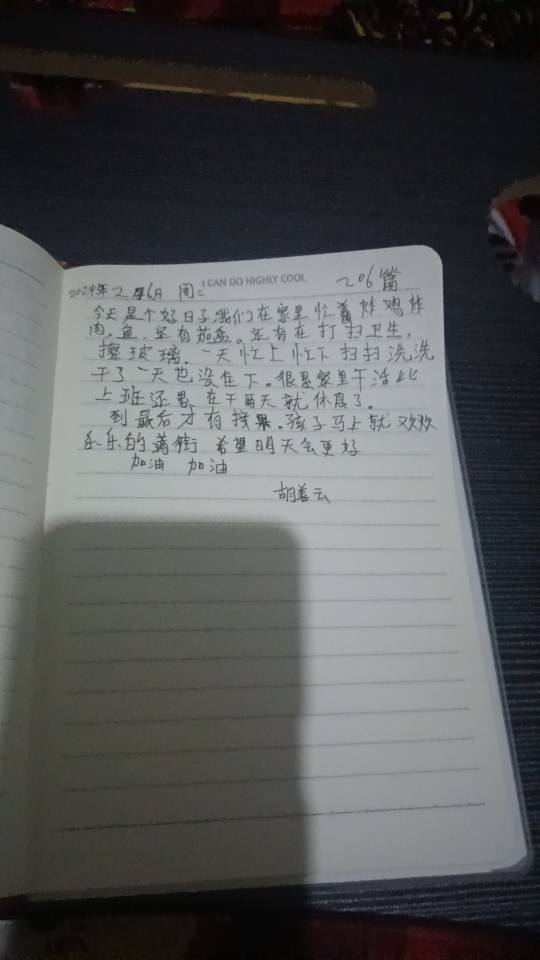 I CAN DO HIGHLY COOL
2024年2月6月 周二 206篇
今天是个好日子我们在家里忙着炸鸡炸
肉,鱼,还有茄盒。还有在打扫卫生,
擦玻璃。一天忙上忙下扫扫洗洗
干了一天也没住下。很累家里干活比
上班还累 在干两天就休息了。
到最后才有接果。孩子马上就欢欢
乐乐的满街 希望明天会更好
加油 加油
胡善云